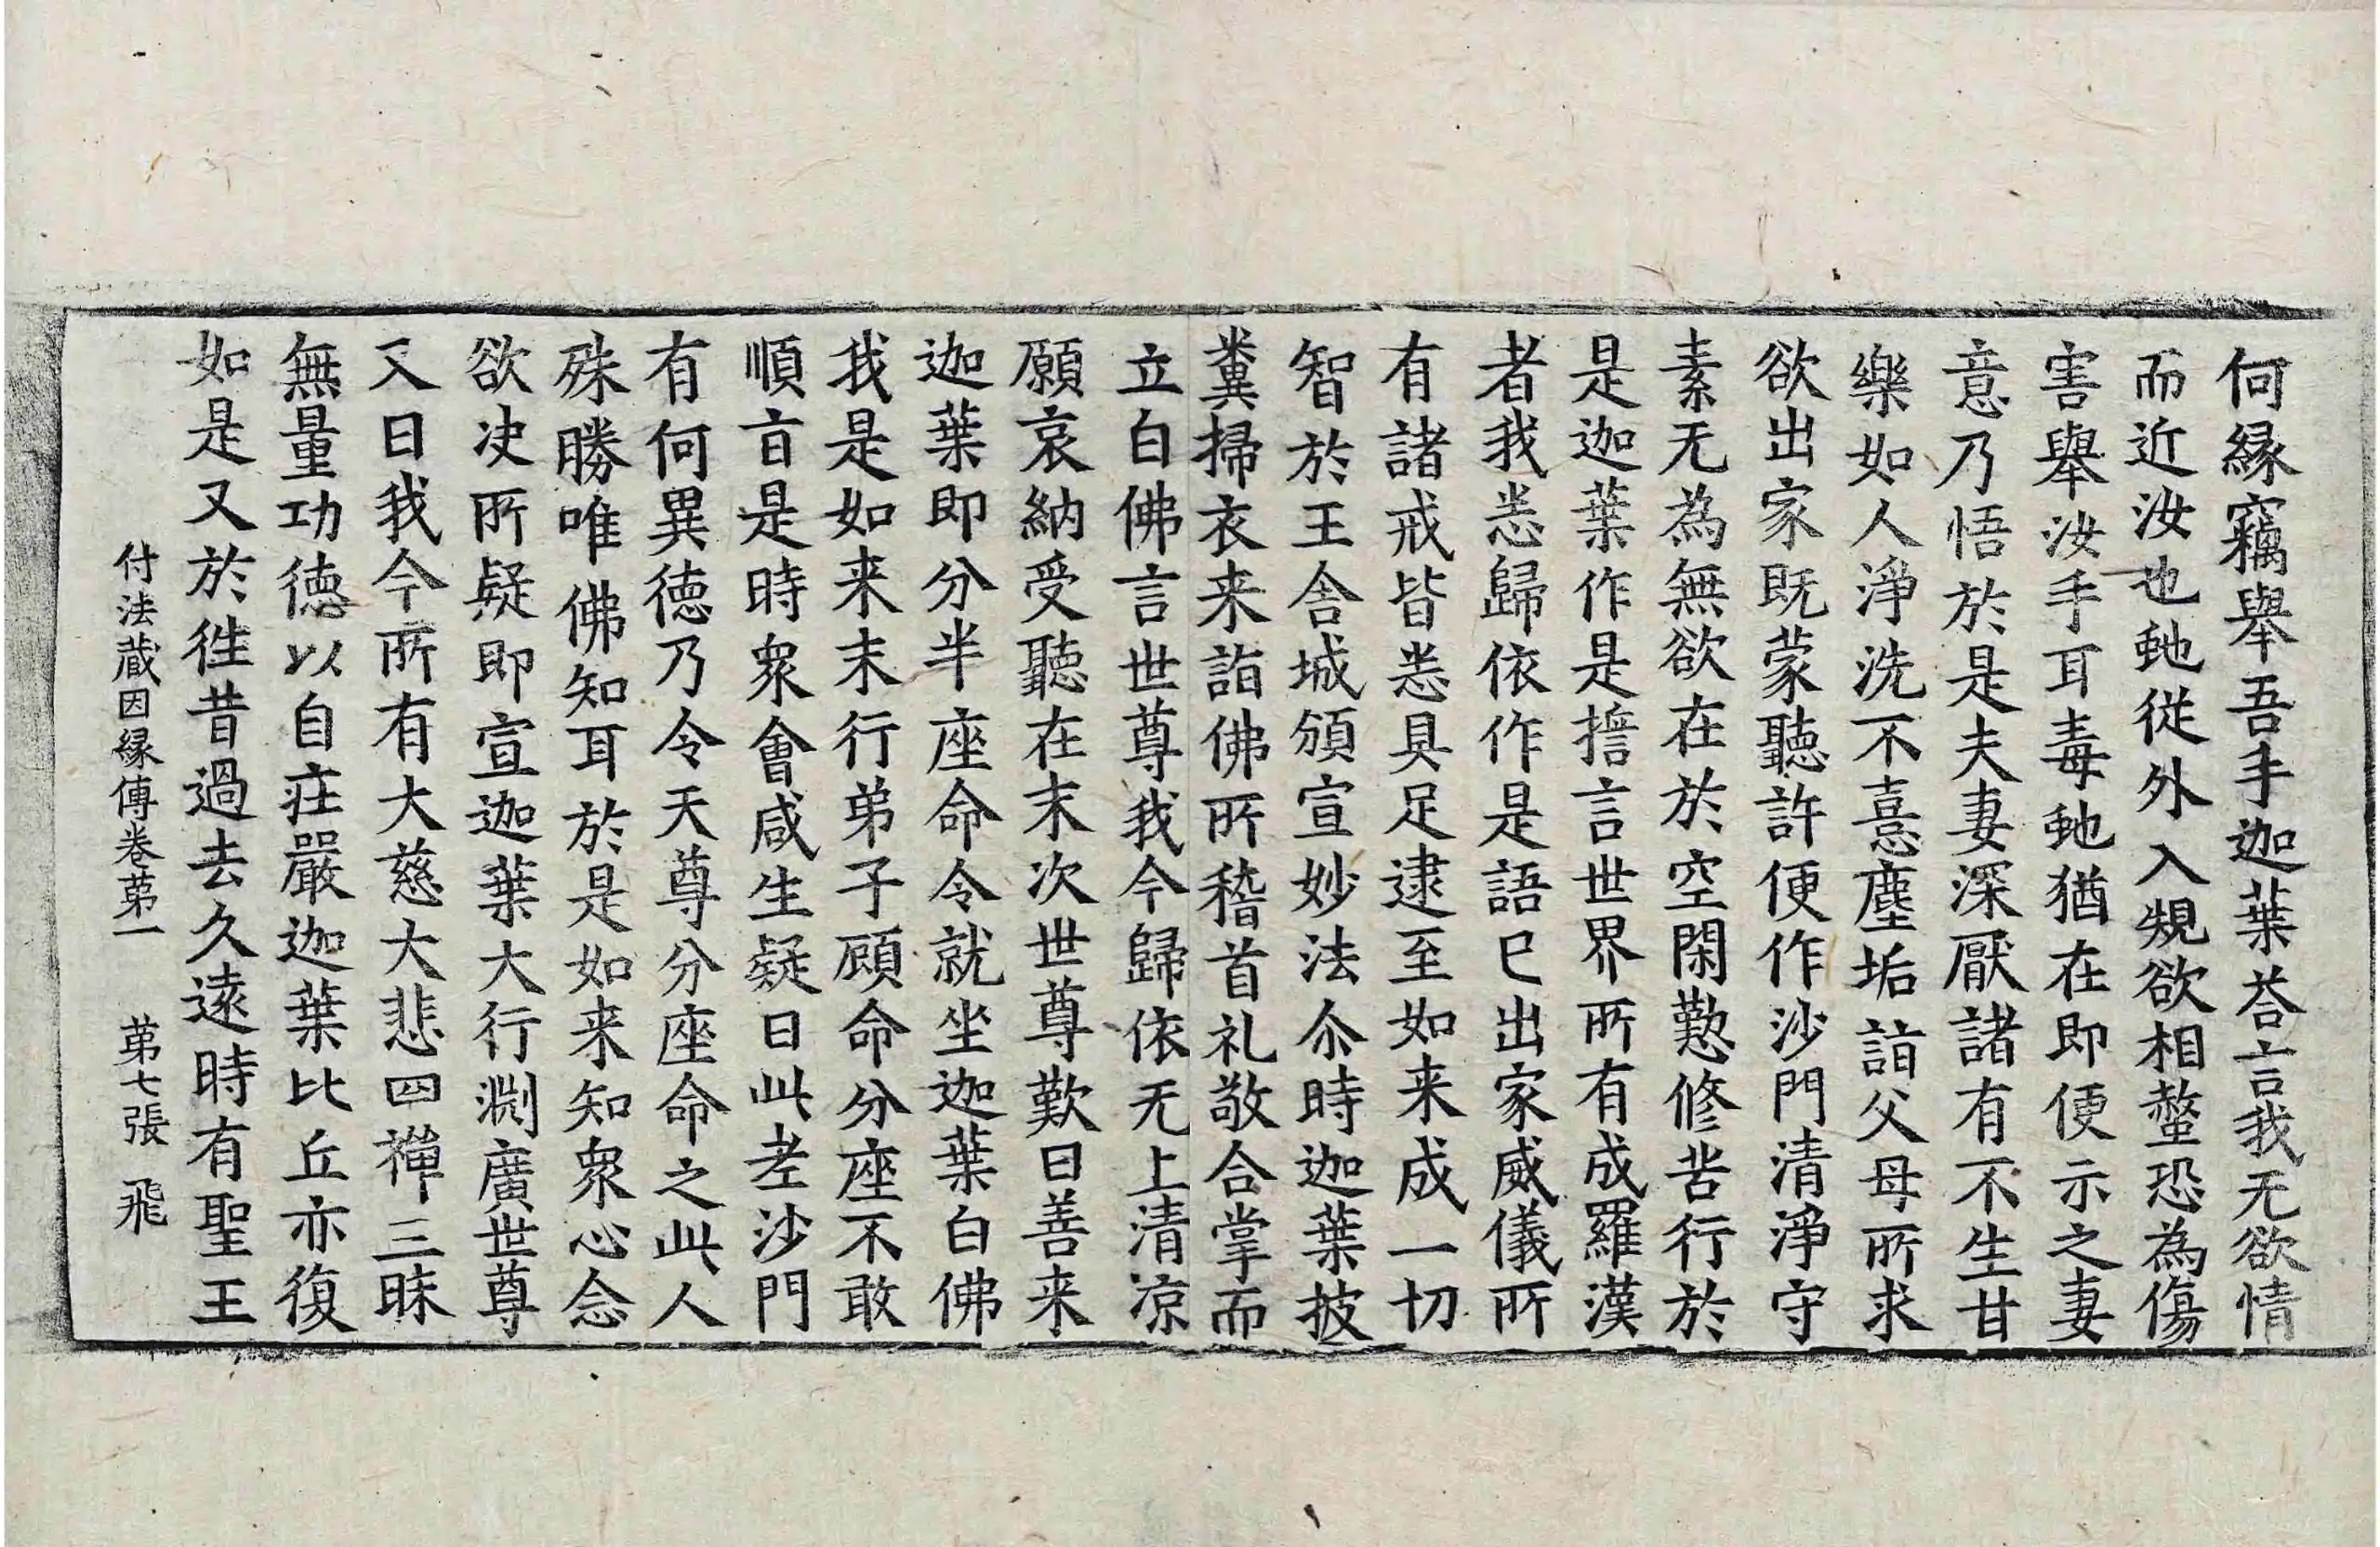 何縁竊舉吾手迦葉荅言我无欲情
而近汝也虵從外入規欲相螫恐為傷
害舉汝手耳毒虵猶在即便示之妻
意乃悟於是夫妻深猒諸有不生甘
樂如人淨洗不憙塵垢詣父母所求
欲出家既蒙聽許便作沙門清淨守
素无為無欲在於空閑懃修苦行於
是迦葉作是擔言世界所有成羅漢
者我悉歸依作是語已出家威儀所
有諸戒皆悉具足逮至如来成一切
智於王舍城頒宣妙法尒時迦葉披
糞掃衣来詣佛所稽首礼敬合掌而
立白佛言世尊我今歸依无上清凉
願哀納受聽在末次世尊歎曰善来
迦葉即分半座命令就坐迦葉白佛
我是如来末行弟子顧命分座不敢
順旨是時衆會咸生疑曰此老沙門
有何異德乃令天尊分座命之此人
殊勝唯佛知耳於是如来知衆心念
欲决所疑即宣迦葉大行渕廣世尊
又曰我今所有大慈大悲四禪三昧
無量功德以自莊嚴迦葉比丘亦復
如是又於徃昔過去久遠時有聖王
付法蔵因縁傳卷苐一 苐七張 飛